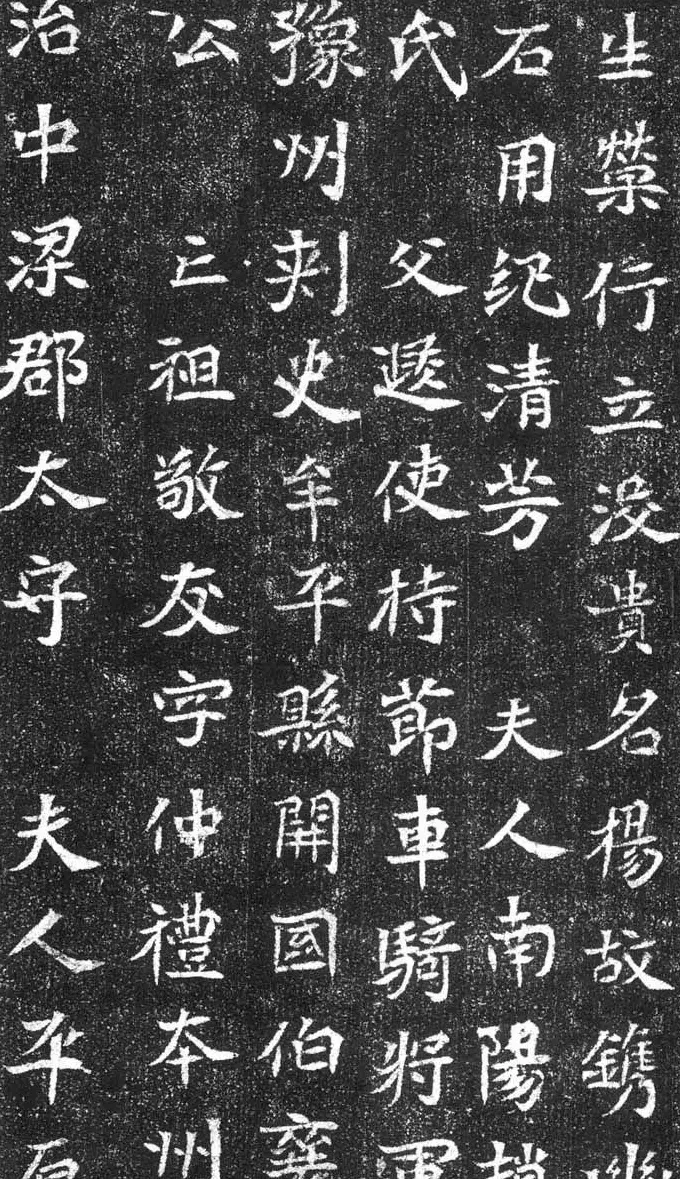 生榮行立没貴名楊故鐫幽
石用紀清芳 夫人南陽趙
氏 父遜使持莭車騎將軍
豫州刾史牟平縣開國伯襄
公 亡祖敬友字仲禮本州
治中梁郡太守 夫人平原